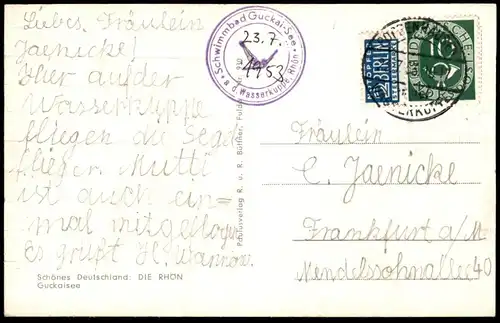 Liebes Fräulein
Jaenicke!
Hier auf der
Wasserkuppe
fliegen die Segel
flieger. Mutti
ist auch ein-
mal mitgeflogen
Es grüßt H. Wannow.
Schönes Deutschland: DIE RHÖN
Guckaisee
Schwimmbad Guckai-See
a. d. Wasserkuppe, Rhön
23.7.
1953
Paulusverlag R. u. R. Büttner, Fulda
NOTOPFER
2 BERLIN
STEUERMARKE
10
Fräulein
C. Jaenicke
Frankfurt a/M
Mendelssohnallee 40